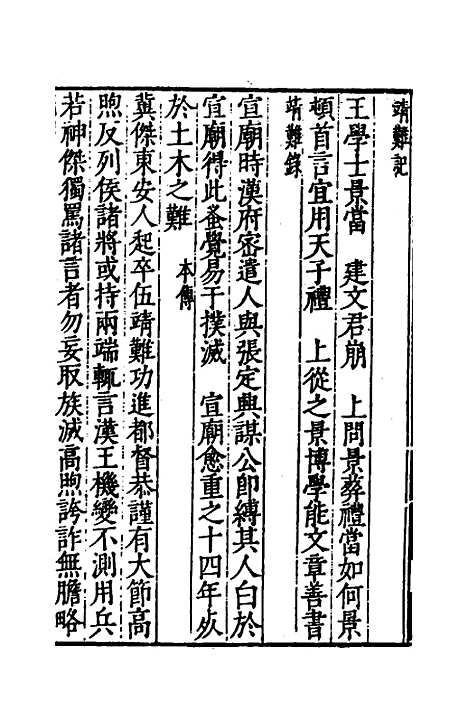 靖難記
王學士景當　建文君崩　上問景葬禮當如何景
頓首言宜用天子禮　上從之景博學能文章善書
靖難錄
宣廟時漢府密遣人與張定興謀公即縛其人白於
宣廟得此蚤覺易于撲滅　宣廟愈重之十四年㱙
於土木之難　本傳
冀傑東安人起卒伍靖難功進都督恭謹有大節高
煦反列侯諸將或持兩端輒言漢王機變不測用兵
若神傑獨罵諸言者勿妄取族滅高煦誇詐無膽略